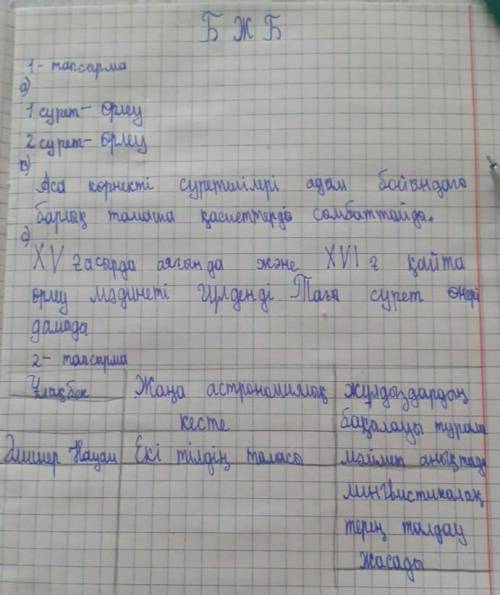 БЖБ
1- тапсарма
а)
1 сурет- өрлеу
2 сурет- өрлеу
в)
Аса корнекті суретшілері адам бойындағо
барлақ тамаша қасиеттердә сомбаттайдо.
с)
XV ғасорда аяғында және XVI ғ қайта
өрлеу мәдинеті гүлденді. Таға сурет өнері
дамода
2- тапсарма
Ұлақбек Жаңа астрономиялақ кесте жұлдоздардоң бақолауо турало мәлімет аноқтадо
Әлішер Науаи Екі тілдің таласо лингвистикалақ терең талдау жасадо